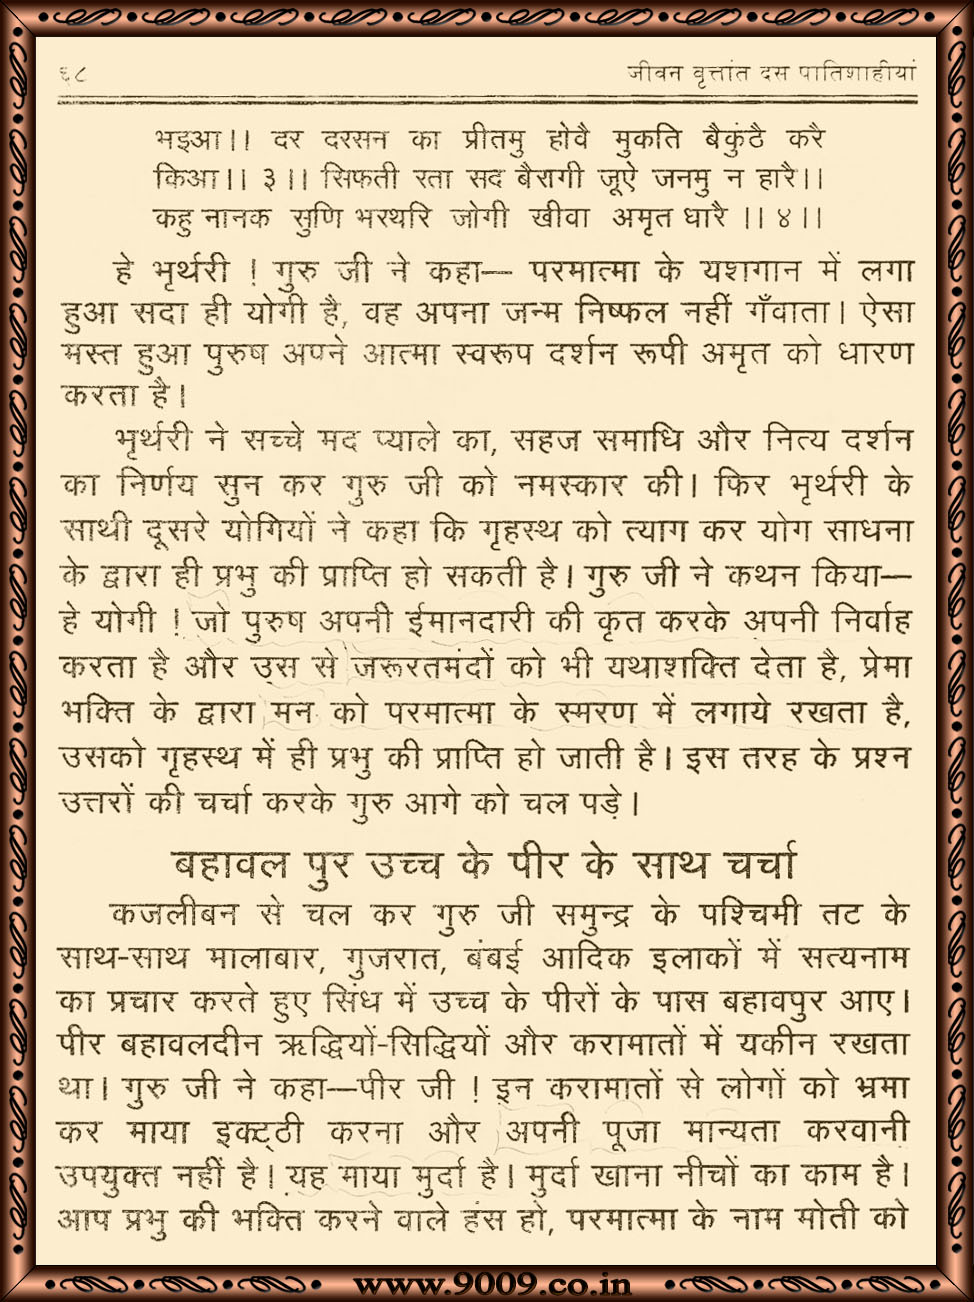 ६८ जीवन वृत्तांत दस पातिशाहीयां
भइआ।। दर दरसन का प्रीतमु होवै मुकति बैकुंठै करै
किआ।। ३।। सिफती रता सद बैरागी जूऐ जनमु न हारै।।
कहु नानक सुणि भरथरि जोगी खीवा अमृत धारै ।। ४।।
हे भृर्थरी ! गुरु जी ने कहा— परमात्मा के यशगान में लगा
हुआ सदा ही योगी है, वह अपना जन्म निष्फल नहीं गँवाता। ऐसा
मस्त हुआ पुरुष अपने आत्मा स्वरूप दर्शन रूपी अमृत को धारण
करता है।
भृर्थरी ने सच्चे मद प्याले का, सहज समाधि और नित्य दर्शन
का निर्णय सुन कर गुरु जी को नमस्कार की। फिर भृर्थरी के
साथी दूसरे योगियों ने कहा कि गृहस्थ को त्याग कर योग साधना
के द्वारा ही प्रभु की प्राप्ति हो सकती है। गुरु जी ने कथन किया—
हे योगी ! जो पुरुष अपनी ईमानदारी की कृत करके अपनी निर्वाह
करता है और उस से जरूरतमंदों को भी यथाशक्ति देता है, प्रेमा
भक्ति के द्वारा मन को परमात्मा के स्मरण में लगाये रखता है,
उसको गृहस्थ में ही प्रभु की प्राप्ति हो जाती है। इस तरह के प्रश्न
उत्तरों की चर्चा करके गुरु आगे को चल पड़े।
बहावल पुर उच्च के पीर के साथ चर्चा
कजलीबन से चल कर गुरु जी समुन्द्र के पश्चिमी तट के
साथ-साथ मालाबार, गुजरात, बंबई आदिक इलाकों में सत्यनाम
का प्रचार करते हुए सिंध में उच्च के पीरों के पास बहावपुर आए।
पीर बहावलदीन ऋद्धियों-सिद्धियों और करामातों में यकीन रखता
था। गुरु जी ने कहा—पीर जी ! इन करामातों से लोगों को भ्रमा
कर माया इक्ट्ठी करना और अपनी पूजा मान्यता करवानी
उपयुक्त नहीं है। यह माया मुर्दा है। मुर्दा खाना नीचों का काम है।
आप प्रभु की भक्ति करने वाले हंस हो, परमात्मा के नाम मोती को
www.9009.co.in